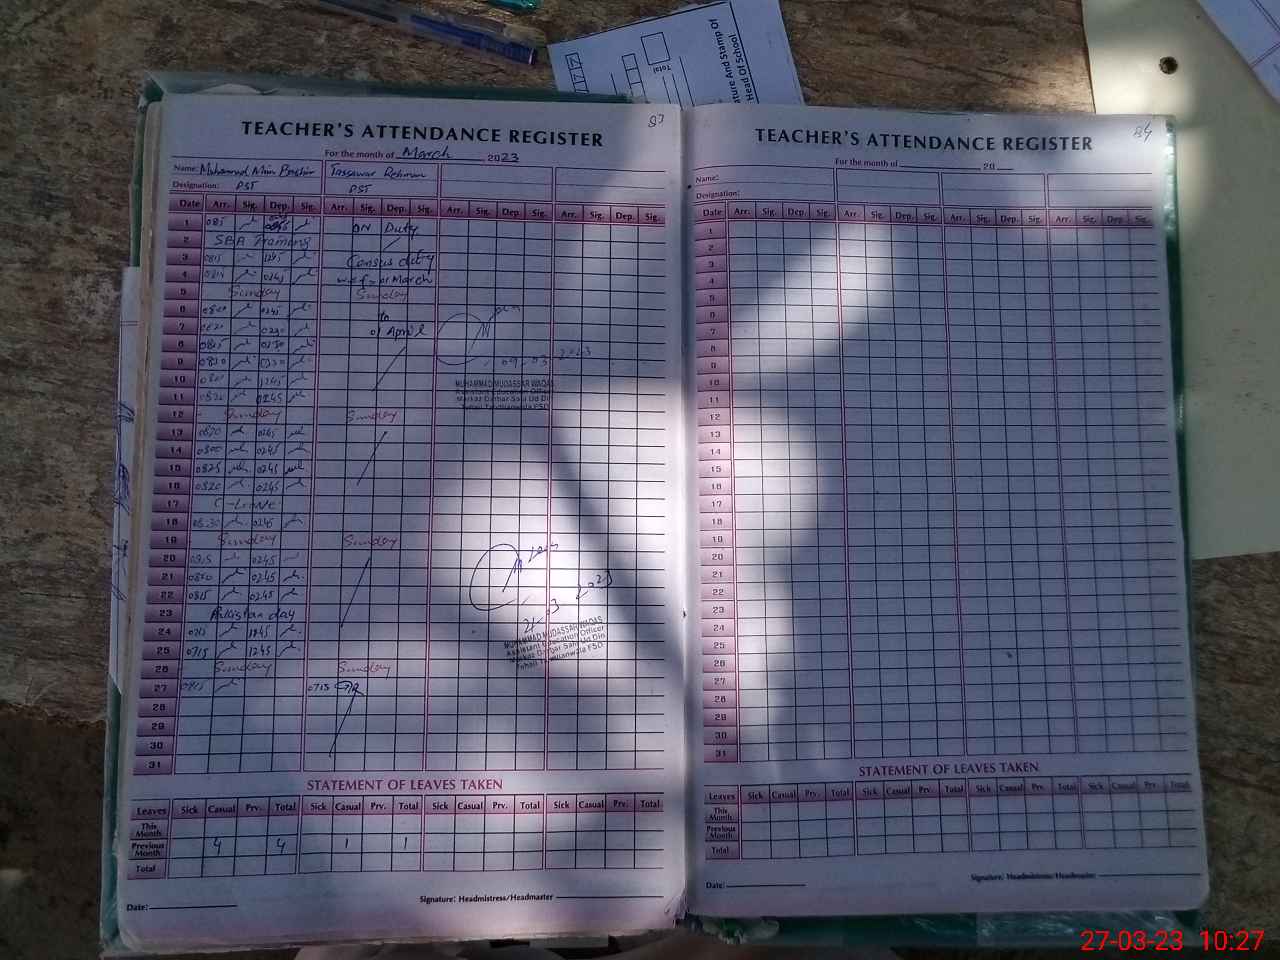 Total
ature And Stamp Of
Head Of School
83
TEACHER'S ATTENDANCE REGISTER
For the month of March 2023
Name: Muhammad Tassawar Rehman
Designation: PST PST
Date Arr. Sig. Dep. Sig. Arr. Sig. Dep. Sig. Arr. Sig. Dep. Sig. Arr. Sig. Dep. Sig.
1 ON Duty
2 SBA Training
3 0815 1245 Census duty
4 0245 March
5 Sunday Sunday
6 0245 to
7 0230 01 April
8 0230
9 09-03-2023
10 1245 MUHAMMAD MUDASSAR WAQAS
11 0245 Markaz Darbar Sain Ud Din
Tehsil Tandlianwala FSD
12 Sunday Sunday
13 0820 0245
14 0800 0245
15 0825 0245
16 0820 0245
17 C-Leave
18 0830 0245
19 Sunday Sunday
20 0815 0245
21 0800 0245
22 0815 0245
23 Pakistan day 21-03-2023
24 0715 1245 MUHAMMAD MUDASSAR WAQAS
Assistant Education Officer
25 0715 1245 Markaz Darbar Sain Ud Din
Tehsil Tandlianwala FSD
26 Sunday Sunday
27 0715 0715
28
29
30
31
STATEMENT OF LEAVES TAKEN
Leaves Sick Casual Prv. Total Sick Casual Prv. Total Sick Casual Prv. Total Sick Casual Prv. Total
This Month
Previous Month 4 4 1 1
Total
Date:
Signature: Headmistress/Headmaster
84
TEACHER'S ATTENDANCE REGISTER
For the month of 20
Name:
Designation:
Date Arr. Sig. Dep. Sig. Arr. Sig. Dep. Sig. Arr. Sig. Dep. Sig. Arr. Sig. Dep. Sig.
1
2
3
4
5
6
7
8
9
10
11
12
13
14
15
16
17
18
19
20
21
22
23
24
25
26
27
28
29
30
31
STATEMENT OF LEAVES TAKEN
Leaves Sick Casual Prv. Total Sick Casual Prv. Total Sick Casual Prv. Total Sick Casual Prv. Total
This Month
Previous Month
Total
Date:
Signature: Headmistress/Headmaster
27-03-23 10:27